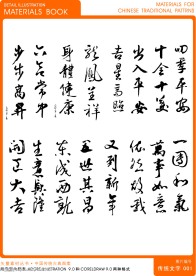 DETAIL ILLUSTRATION
MATERIALS BOOK
MATERIALS FOR
CHINESE TRADITIONAL PATTERNS
四季平安
十全十美
出入平安
吉星高照
龍鳳呈祥
身體健康
六合常中
步步高昇
一團和氣
萬事如意
又到新年
五世其昌
東成西就
生意興隆
開正大吉
传统文字